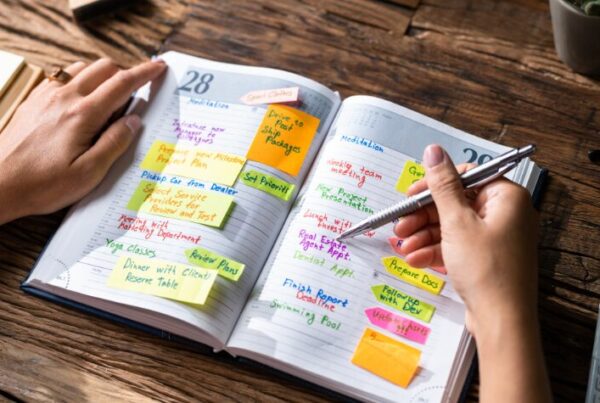 28
Meditation
Introduce new
Manager to
Managers
Prepare new Milestone
Project Plan
Pickup Car from Dealer
Select Service
Providers for
Review and Test
Meeting with
Marketing Department
Yoga Classes
Dinner with Client
Reserve Table
Drive to
Post
Ship
Packages
Set Priority
Review Plans
29
Meditation
Weekly team
meeting
New Project
Presentation
Lunch with
Real Estate
Agent Appt.
Dentist Appt.
Finish Report
Deadline
Swimming Pool
Prepare Docs
Followup
with Dev